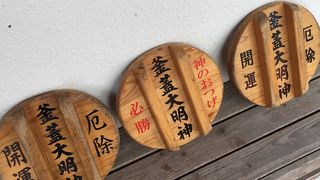 厄除
釜蓋大明神
開運
神のおつげ
釜蓋大明神
必勝
厄除
釜蓋大明神
開運